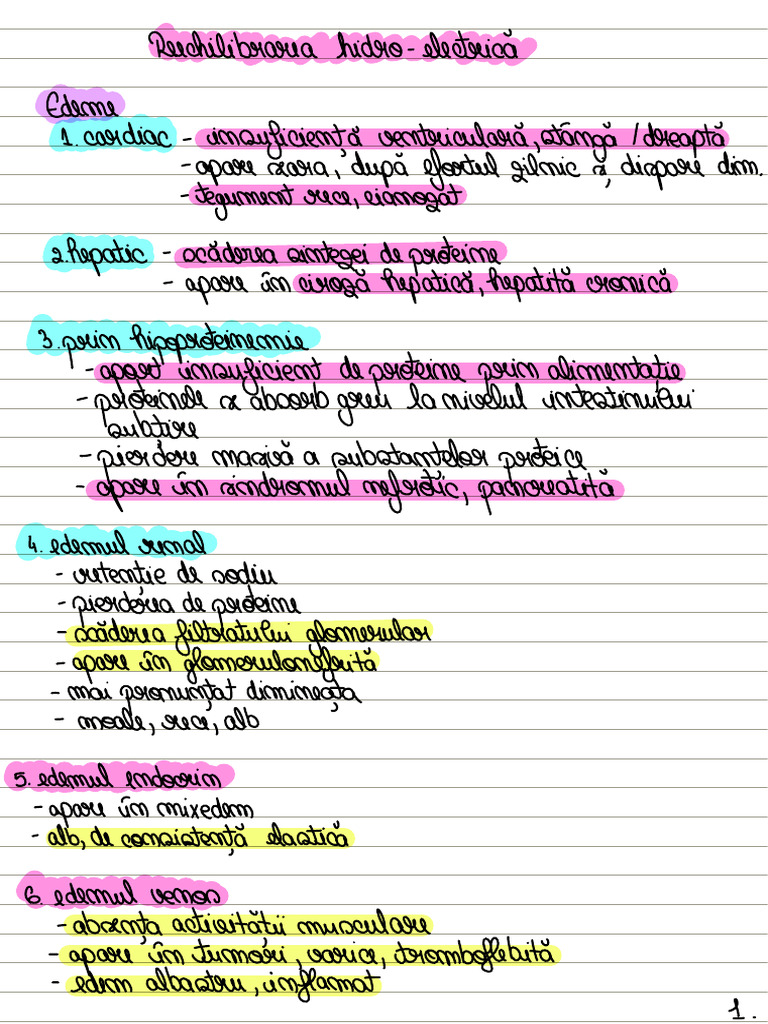 Reechilibrarea hidro-electrică
Edeme
1. cardiac - insuficiență ventriculară, stângă / dreaptă
- apare seara, după efortul zilnic și dispare dim.
- tegument rece, cianozat
2. hepatic - scăderea sintezei de proteine
- apare în ciroză hepatică, hepatită cronică
3. prin hipoproteinemie
- aport insuficient de proteine prin alimentație
- proteinele se absorb greu la nivelul intestinului
subțire
- pierdere masivă a substantelor proteice
- apare în sindromul nefrotic, pancreatită
4. edemul renal
- retenție de sodiu
- pierderea de proteine
- scăderea filtratului glomerular
- apare în glomerulonefrită
- mai pronunțat dimineața
- moale, rece, alb
5. edemul endocrin
- apare în mixedem
- alb, de consistență elastică
6. edemul venos
- absența activității musculare
- apare în tumori, varice, tromboflebită
- edem albastru, inflamat
1.